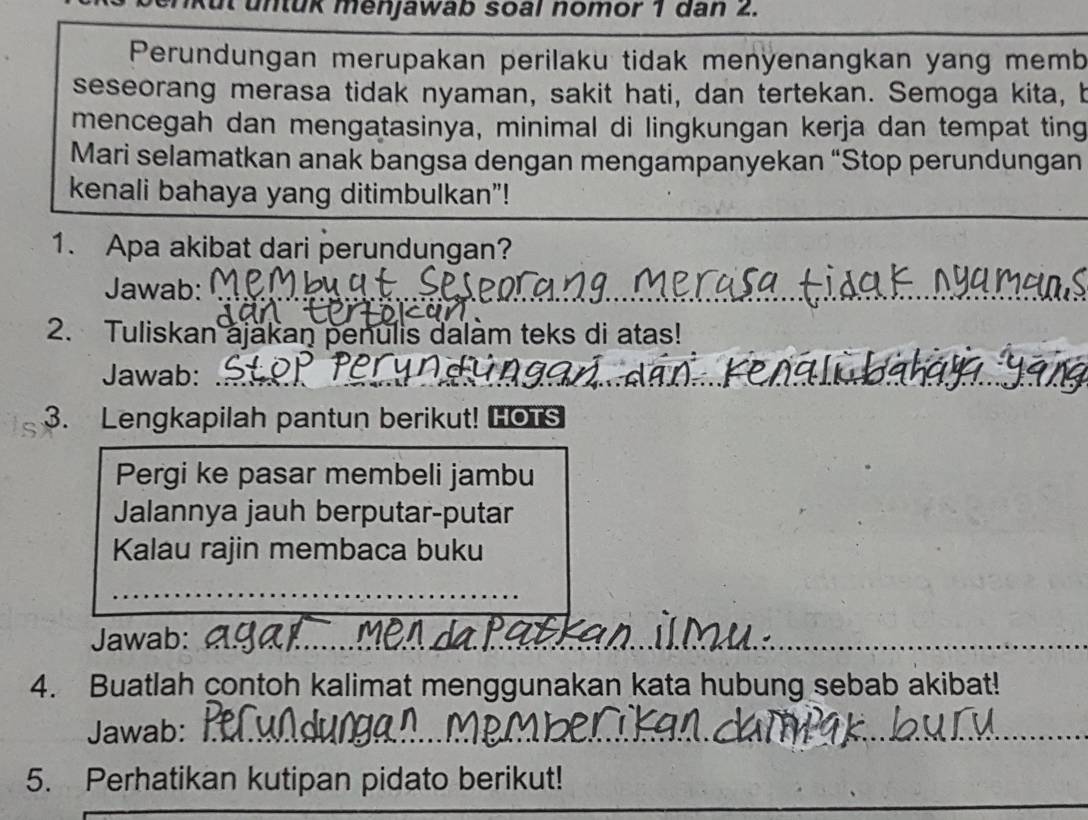 berikut untuk menjawab soal nomor 1 dan 2.
Perundungan merupakan perilaku tidak menyenangkan yang memb
seseorang merasa tidak nyaman, sakit hati, dan tertekan. Semoga kita, b
mencegah dan mengatasinya, minimal di lingkungan kerja dan tempat ting
Mari selamatkan anak bangsa dengan mengampanyekan “Stop perundungan
kenali bahaya yang ditimbulkan”!
1. Apa akibat dari perundungan?
Jawab: Membuat seseorang merasa tidak nyaman, s
dan tertekan.
2. Tuliskan ajakan penulis dalam teks di atas!
Jawab: Stop perundungan dan kenali bahaya yang
3. Lengkapilah pantun berikut! HOTS
Pergi ke pasar membeli jambu
Jalannya jauh berputar-putar
Kalau rajin membaca buku
Jawab: agar mendapatkan ilmu.
4. Buatlah contoh kalimat menggunakan kata hubung sebab akibat!
Jawab: Perundungan memberikan dampak buru
5. Perhatikan kutipan pidato berikut!